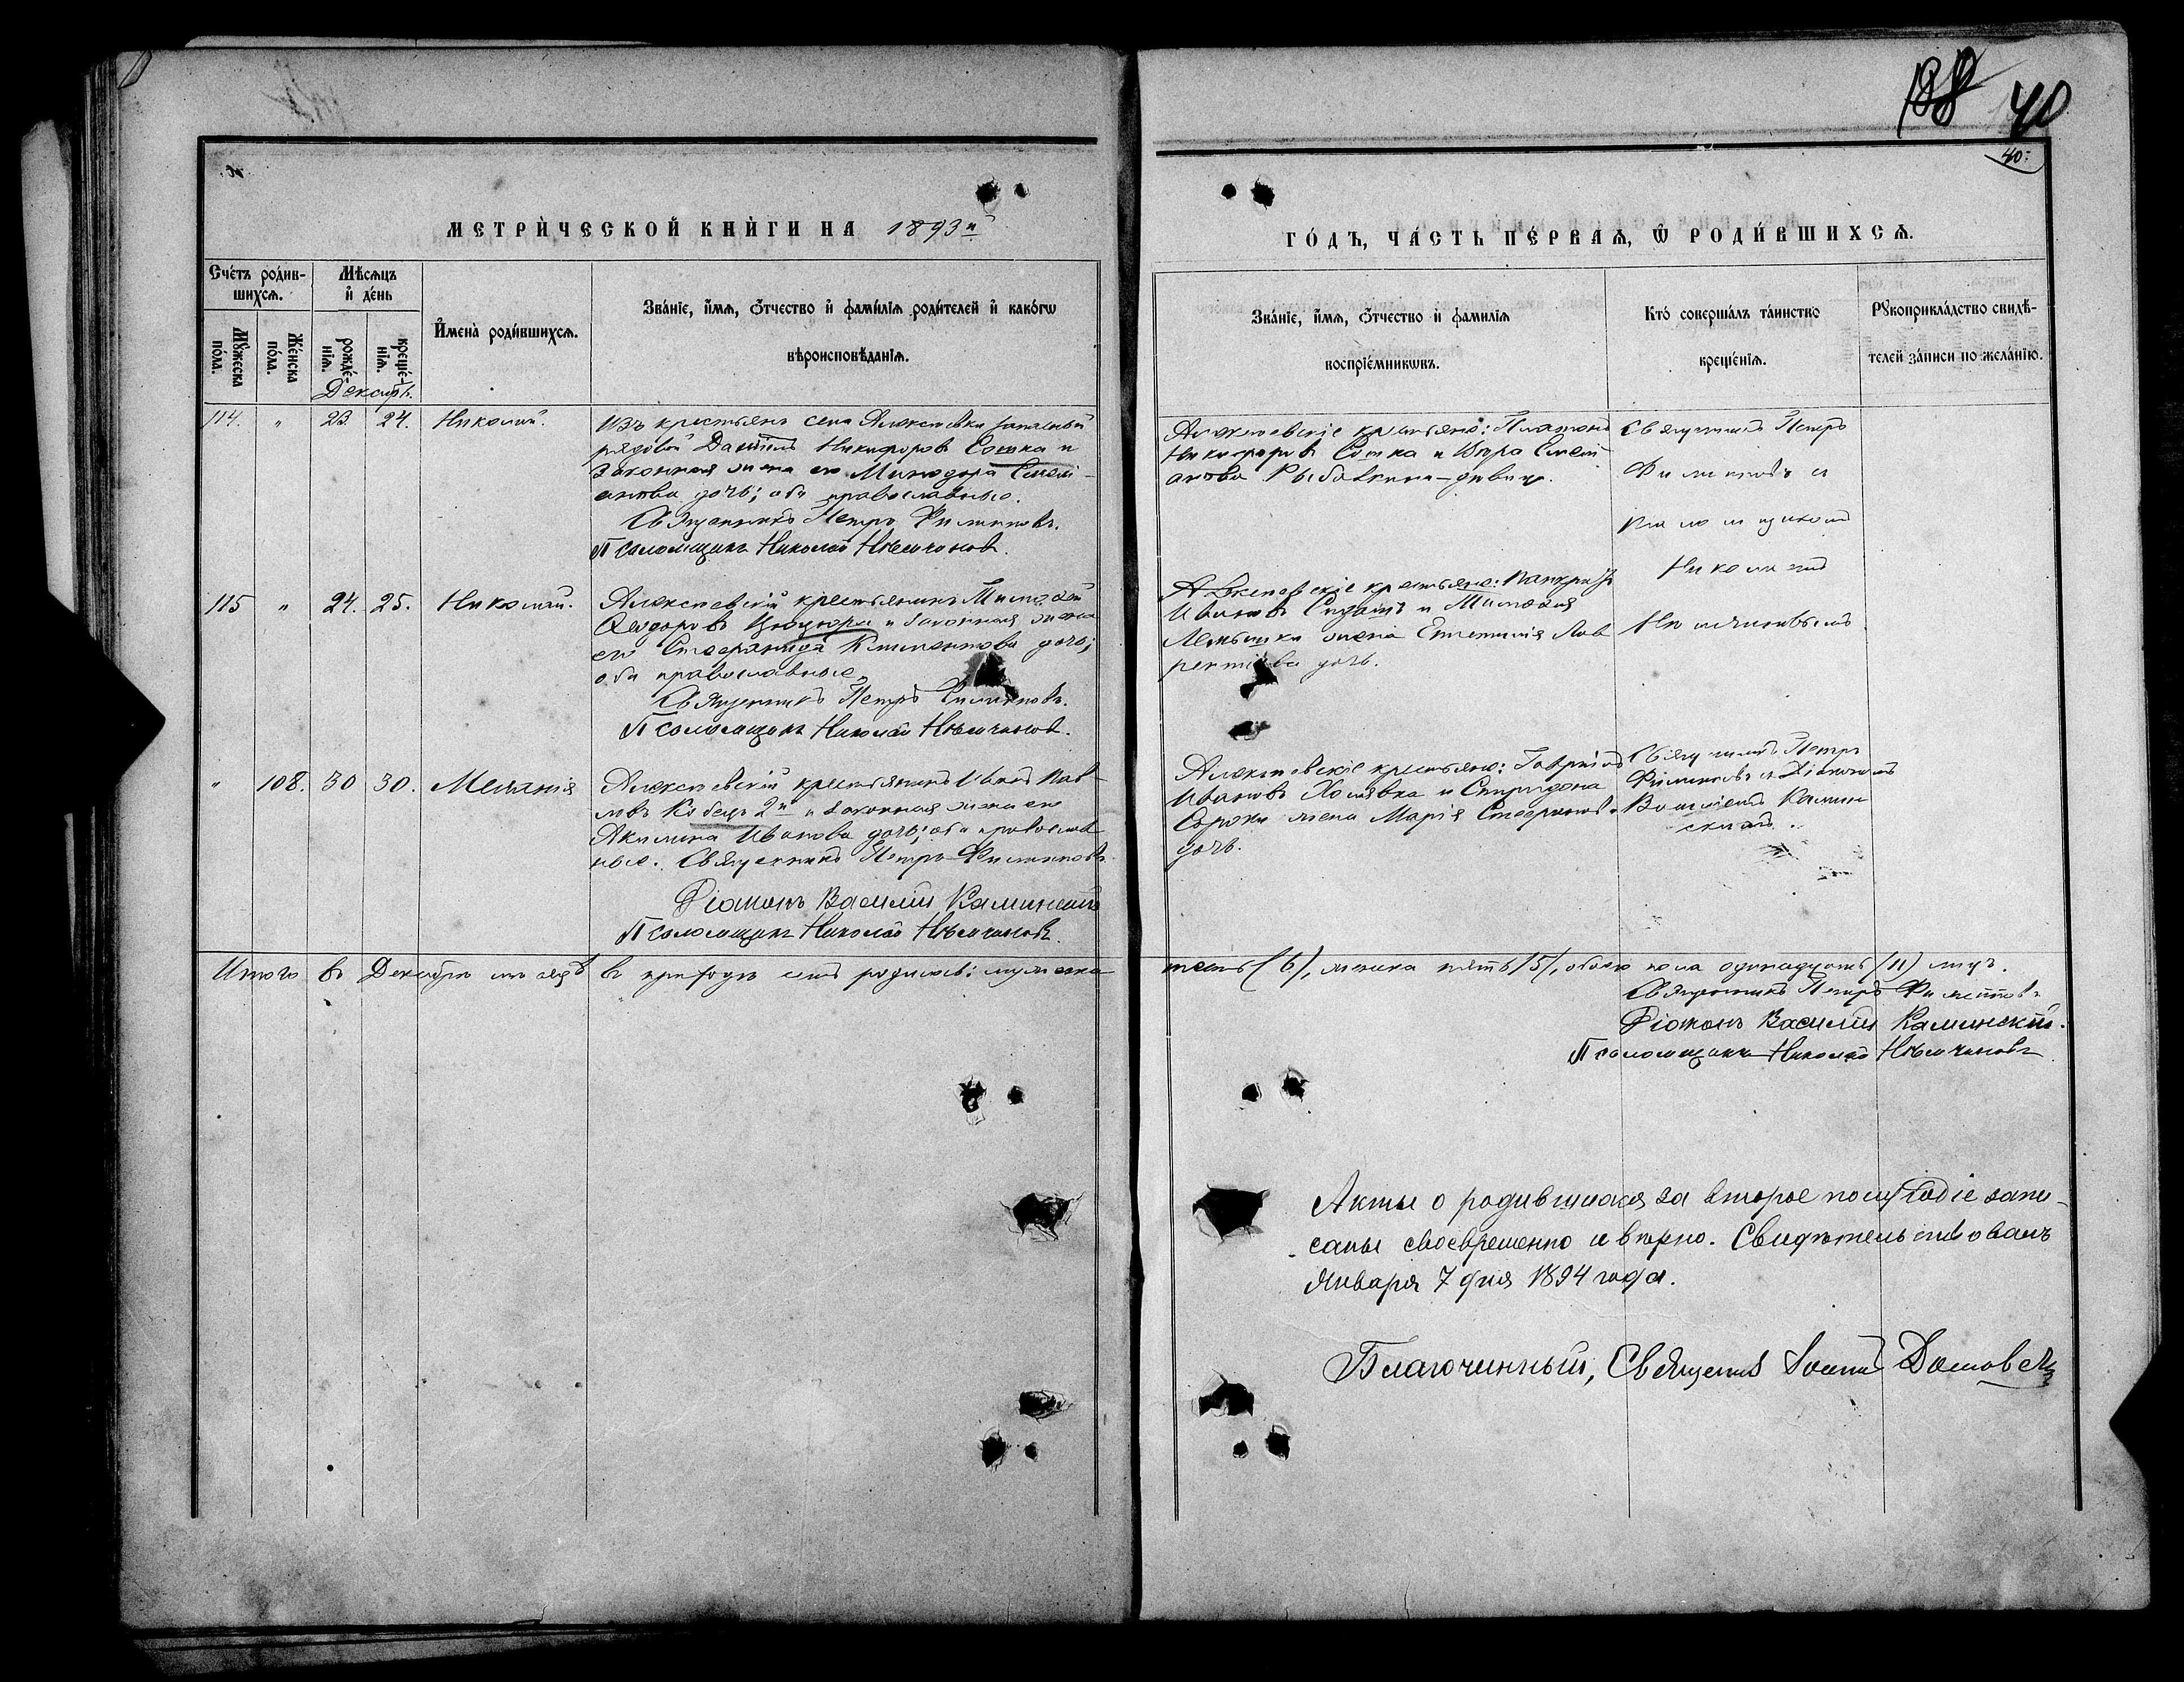 138 40
40.
МЕТРИ́ЧЕСКОЙ КНИ́ГИ НА 1893й
ГО́ДЪ, ЧА́СТЬ ПЕ́РВАѦ, Ѡ РОДИ́ВШИХСѦ.
Счетъ родив-
шихсѧ.
Мѣсѧцъ
и день
Мꙋжеска
пола.
Женска
пола.
рожде-
нїѧ.
креще-
нїѧ.
Имена родившихсѧ.
Званїе, имѧ, отчество и фамилїѧ родителей и какогѡ
вѣроисповѣданїѧ.
Званїе, имѧ, отчество и фамилїѧ
воспрїемникѡвъ.
Кто совершалъ таинство
крещенїѧ.
Рꙋкоприкладство свидѣ-
телей записи по желанїю.
Декабрь.
114. " 23. 24. Николай.
Изъ крестьянъ села Алексѣевки запасный
рядовой Даніилъ Никифоровъ Сошка и
законная жена его Минодора Стеѳі-
анова дочь; оба православные.
Священникъ Петръ Филипповъ.
Псаломщикъ Николай Нѣмчиновъ.
Алексѣевскіе крестьяне: Платонъ
Никифоровъ Сошка и Вѣра
Рыбалкина-дѣвица.
Священникъ Петръ
Филипповъ и
псаломщикомъ
Николаемъ
Нѣмчиновымъ
115 " 24. 25. Николай.
Алексѣевскій крестьянинъ Тимоѳей
Ѳедоровъ и законная жена
его Стефанида Климентова дочь;
оба православные.
Священникъ Петръ Филипповъ.
Псаломщикъ Николай Нѣмчиновъ.
Алексѣевскіе крестьяне: Панкратъ
Ивановъ и Тимоѳея
жена Евгенія Лав-
рентіева дочь.
" 108. 30 30. Меланія
Алексѣевскій крестьянинъ Иванъ Пав-
ловъ Кобецъ 2й и законная жена его
Акилина Иванова дочь; оба православ-
ные. Священникъ Петръ Филипповъ
Діаконъ Василій Каминскій
Псаломщикъ Николай Нѣмчиновъ.
Алексѣевскіе крестьяне: Гавріилъ
Ивановъ Халявка и Спиридона
Сороки жена Марія Стефанова
дочь.
Священникъ Петръ
Филипповъ и Діакономъ
Василіемъ Камин-
скимъ.
Итого въ Декабрѣ мѣсяцѣ въ приходѣ семъ родилось: мужеска
шесть (6), женска пять (5), обоего пола одинадцать (11) лицъ.
Священникъ Петръ Филипповъ
Діаконъ Василій Каминскій.
Псаломщикъ Николай Нѣмчиновъ
Акты о родившихся за второе полугодіе запи-
саны своевременно и вѣрно. Свидѣтельствовалъ
Января 7 дня 1894 года.
Благочинный, Священникъ Іоаннъ